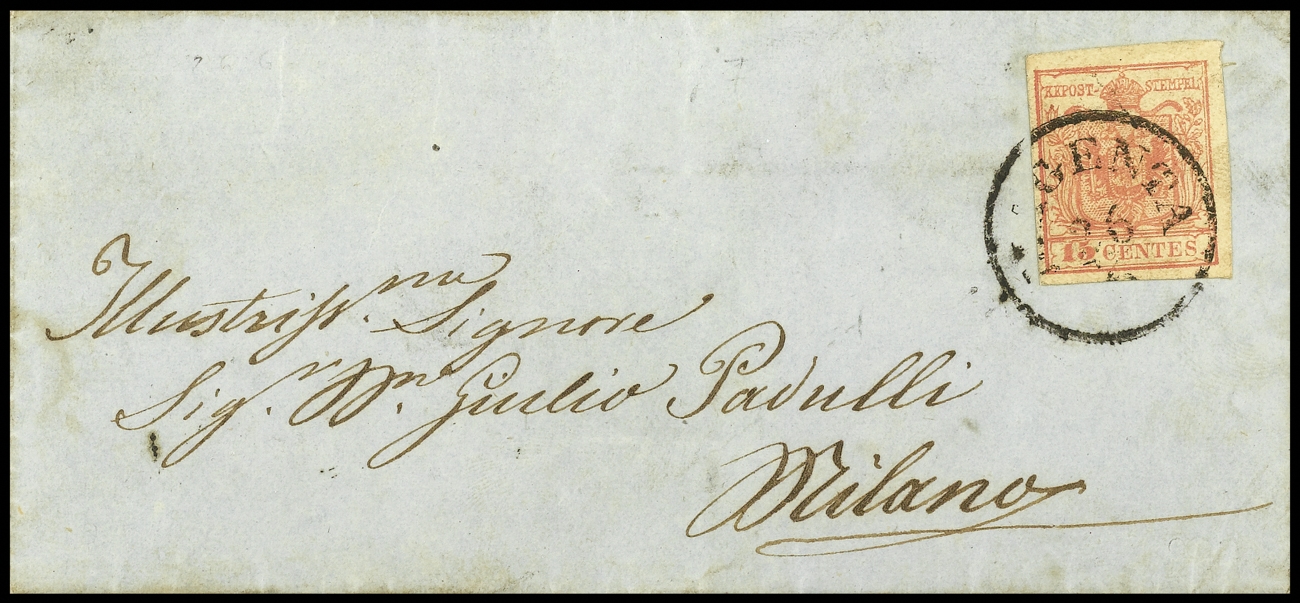 KKPOST-STEMPEL
15 CENTES
Illustriss.mo Signore
Sig.r Giulio Padulli
Milano